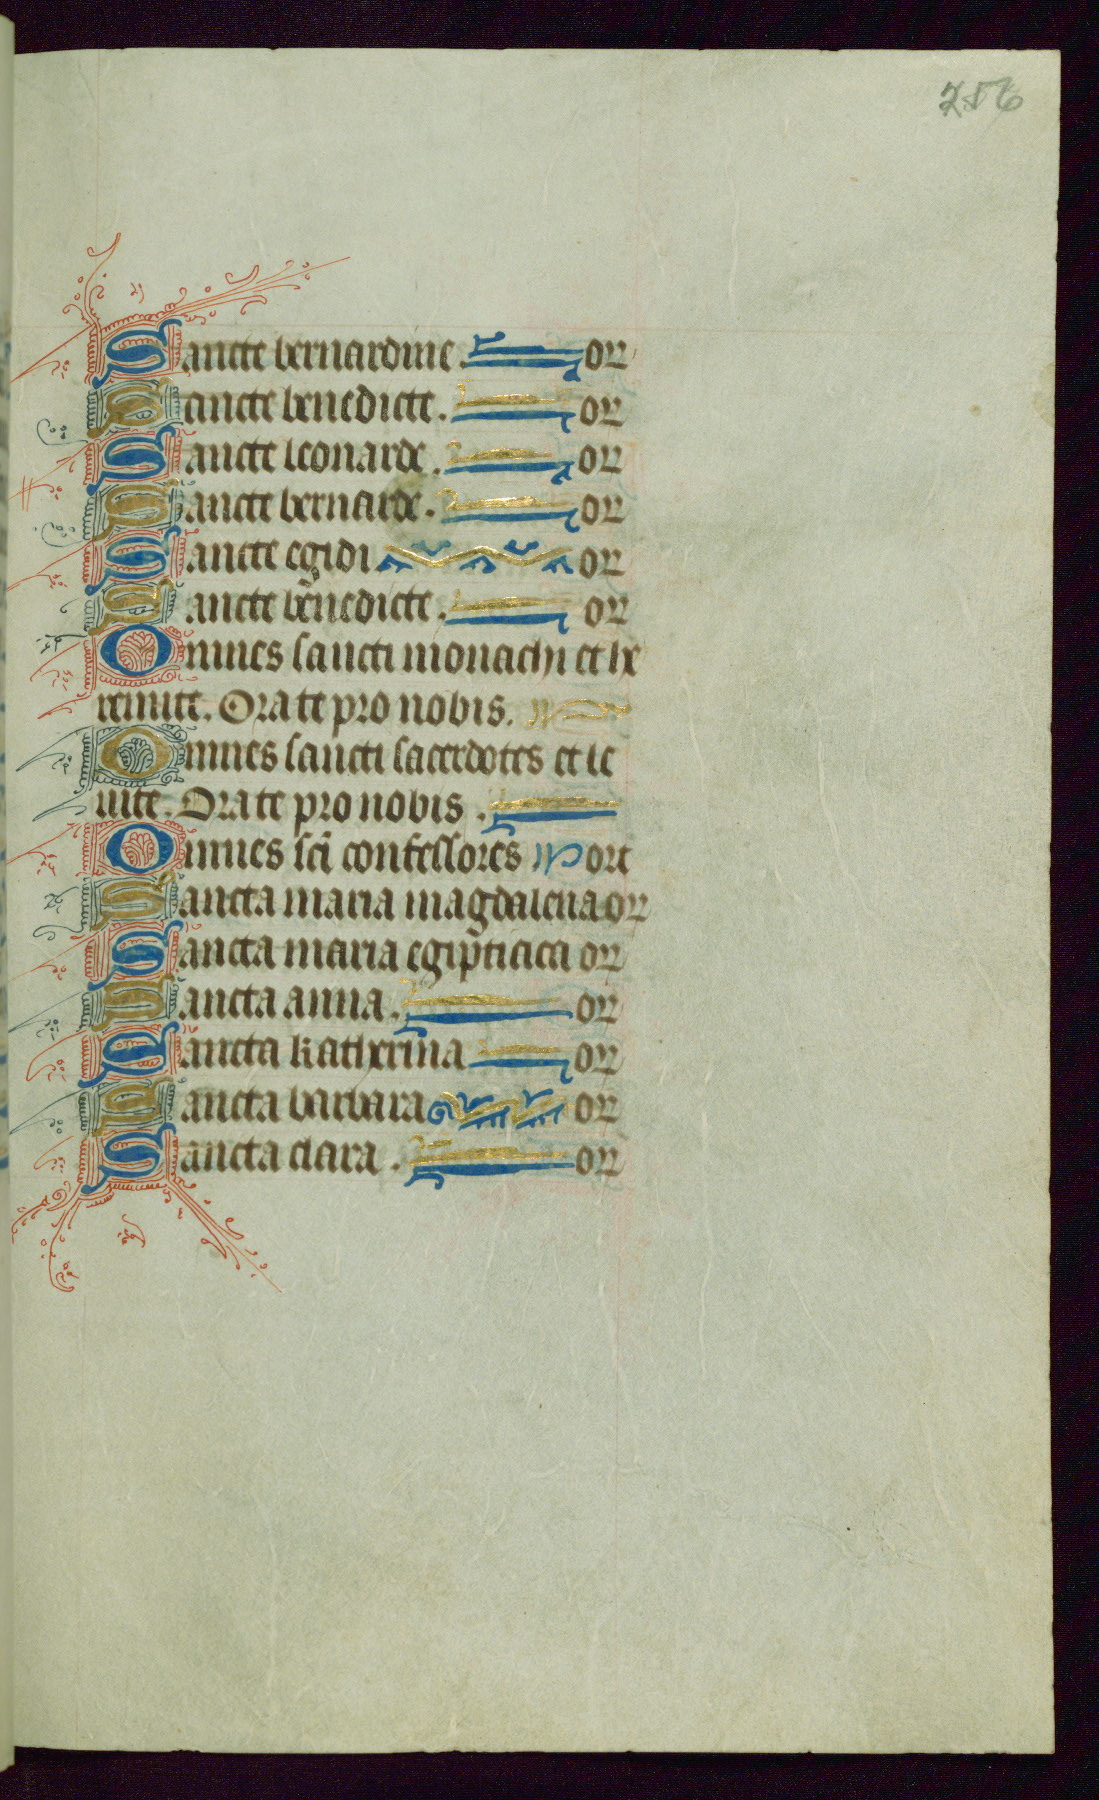 256
Sancte bernardine. or
Sancte benedicte. or
Sancte leonarde. or
Sancte bernarde. or
Sancte egidi or
Sancte benedicte. or
Omnes sancti monachi et he
remite. Orate pro nobis.
Omnes sancti sacerdotes et le
uite. Orate pro nobis.
Omnes sci confessores ore
Sancta maria magdalena or
Sancta maria egipticaca or
Sancta anna. or
Sancta katherina or
Sancta barbara or
Sancta clara. or